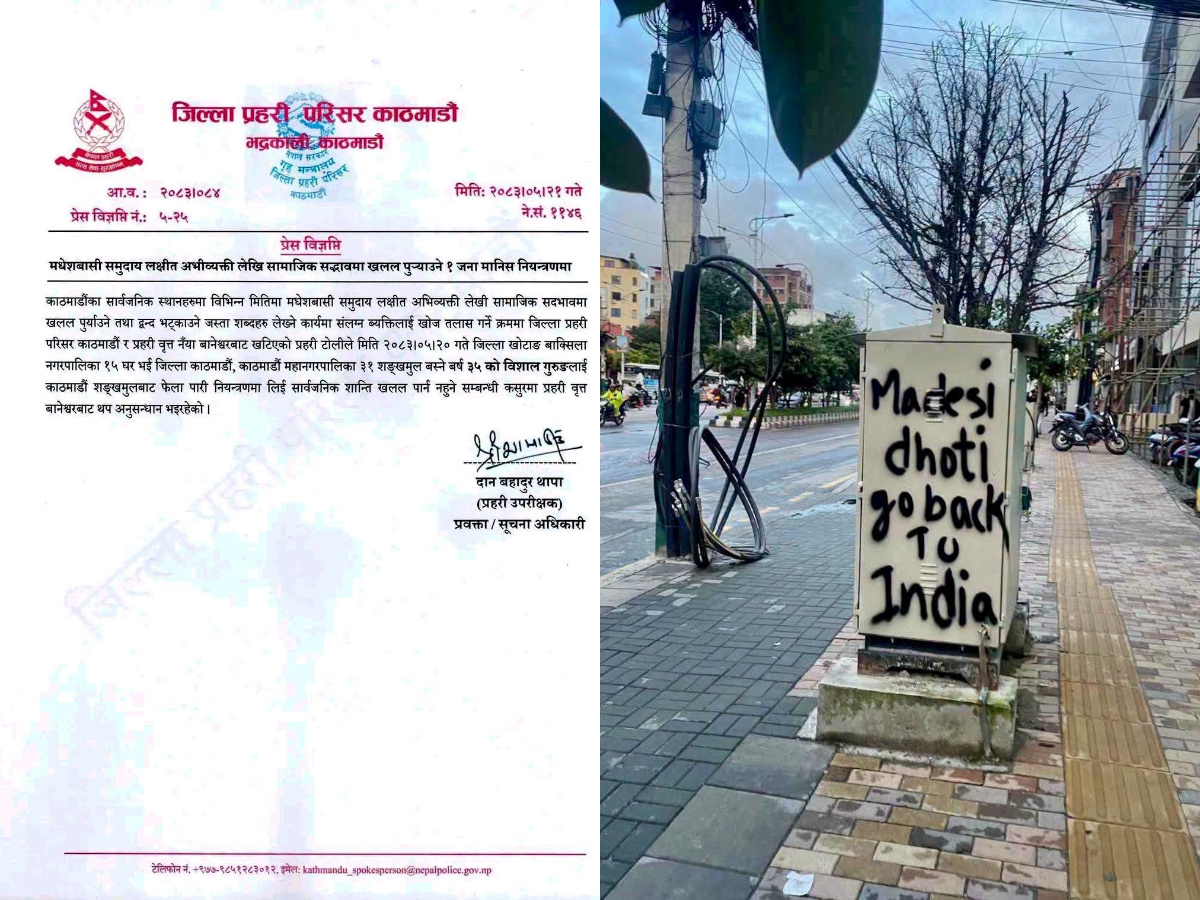 जिल्ला प्रहरी परिसर काठमाडौं
भद्रकाली काठमाडौं
नेपाल प्रहरी
सत्य सेवा सुरक्षणम्
नेपाल सरकार
गृह मन्त्रालय
जिल्ला प्रहरी परिसर
काठमाडौं
आ.व. : २०८३।०८४
मिति: २०८३।०५।२१ गते
प्रेस विज्ञप्ति नं.: ५-२५
ने.सं. ११४६
प्रेस विज्ञप्ति
मधेशबासी समुदाय लक्षीत अभीव्यक्ती लेखि सामाजिक सद्भावमा खलल पुऱ्याउने १ जना मानिस नियन्त्रणमा
काठमाडौंका सार्वजनिक स्थानहरुमा विभिन्न मितिमा मधेशबासी समुदाय लक्षीत अभिव्यक्ती लेखी सामाजिक सदभावमा
खलल पुर्याउने तथा द्वन्द भट्काउने जस्ता शब्दहरु लेख्ने कार्यमा संलग्न ब्यक्तिलाई खोज तलास गर्ने क्रममा जिल्ला प्रहरी
परिसर काठमाडौं र प्रहरी वृत्त नँया बानेश्वरबाट खटिएको प्रहरी टोलीले मिति २०८३।०५।२० गते जिल्ला खोटाङ बाक्सिला
नगरपालिका १५ घर भई जिल्ला काठमाडौं, काठमाडौं महानगरपालिका ३१ शङ्खमुल बस्ने बर्ष ३५ को विशाल गुरुङलाई
काठमाडौं शङ्खमुलबाट फेला पारी नियन्त्रणमा लिई सार्वजनिक शान्ति खलल पार्न नहुने सम्बन्धी कसुरमा प्रहरी वृत्त
बानेश्वरबाट थप अनुसन्धान भइरहेको ।
दान बहादुर थापा
(प्रहरी उपरीक्षक)
प्रवक्ता / सूचना अधिकारी
जिल्ला प्रहरी परिसर
टेलिफोन नं. +९७७-९८५१२८३०१२, इमेल: kathmandu_spokesperson@nepalpolice.gov.np
Madesi
dhoti
go back
TO
India